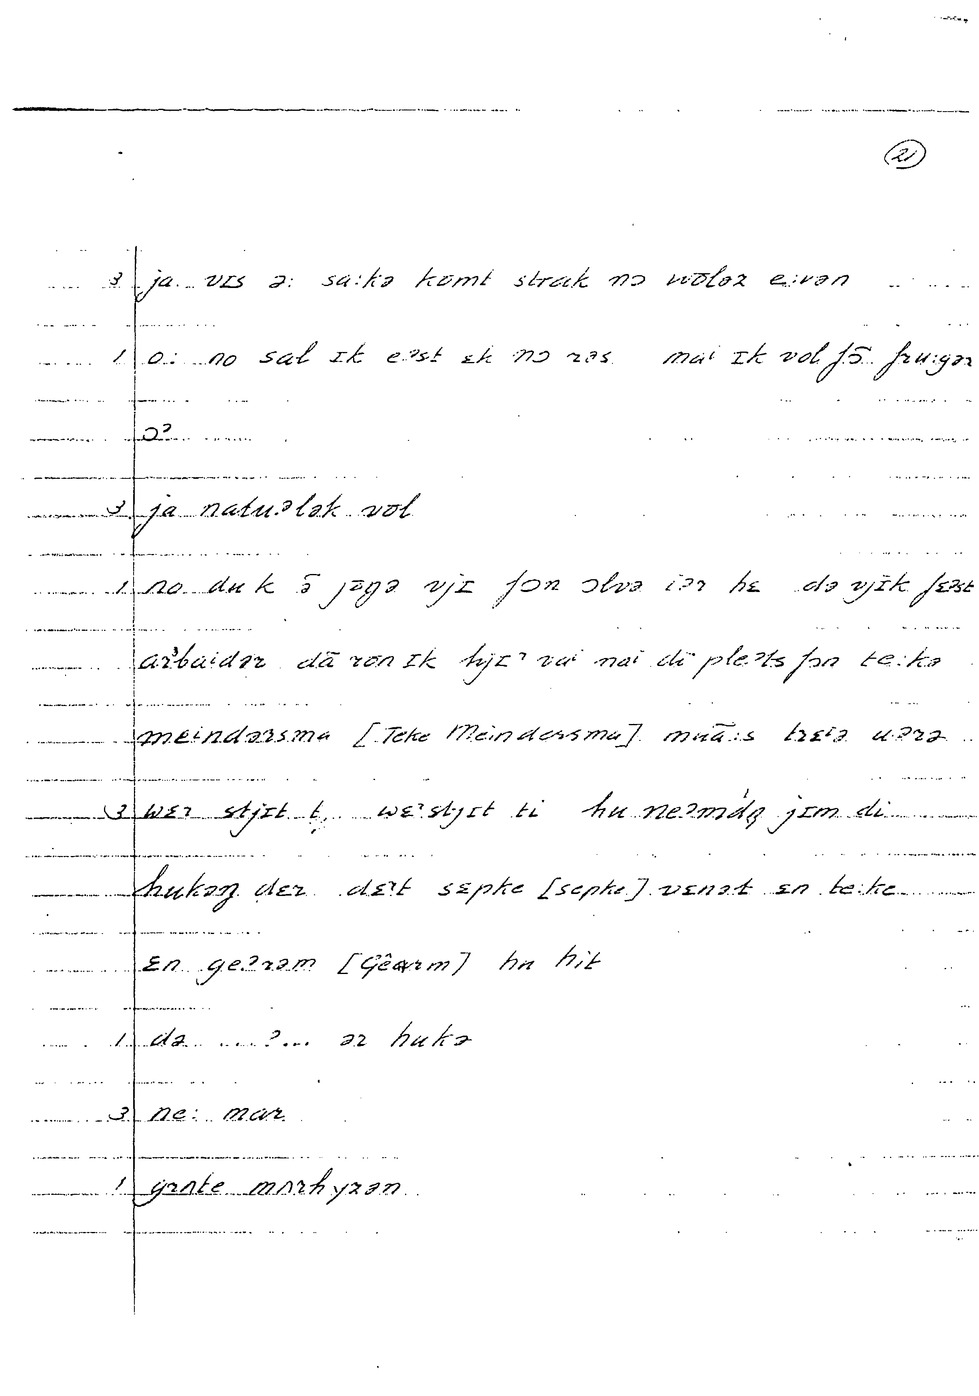 21
3 ja vɪs ə: sa:kə komt strak nɔ wɔlər e:vən
1 o: no sal ɪk eᵊst ɛk nɔ rəs mai ɪk vol fɔ̄ fru:gər
ɔᵊ
3 ja natuᵊlək vol
1 no du k ɔ̄ jɪgə vjɪ fɔn ɔlvə iər hɛ də vjɪk fɛᵊst
aᵊbaidər dā rɔn ɪk hjɪᵊ vai nai di pleᵊts fɔn te:kə
meindərsma [Teke Meindersma] muā:s trɛiə uərə
3 wɛr stjɪt t wɛᵊstjɪt ti hu neᵊmdə jɪm di
hukəŋ dɛr dɛᵊt sɛpke [sepke] vɛnət ɛn te:ke
ɛn geᵊrəm [Gêarm] hu hit
1 də ....?... ər hukə
3 ne: mar
1 grʌte mʌrhyrən